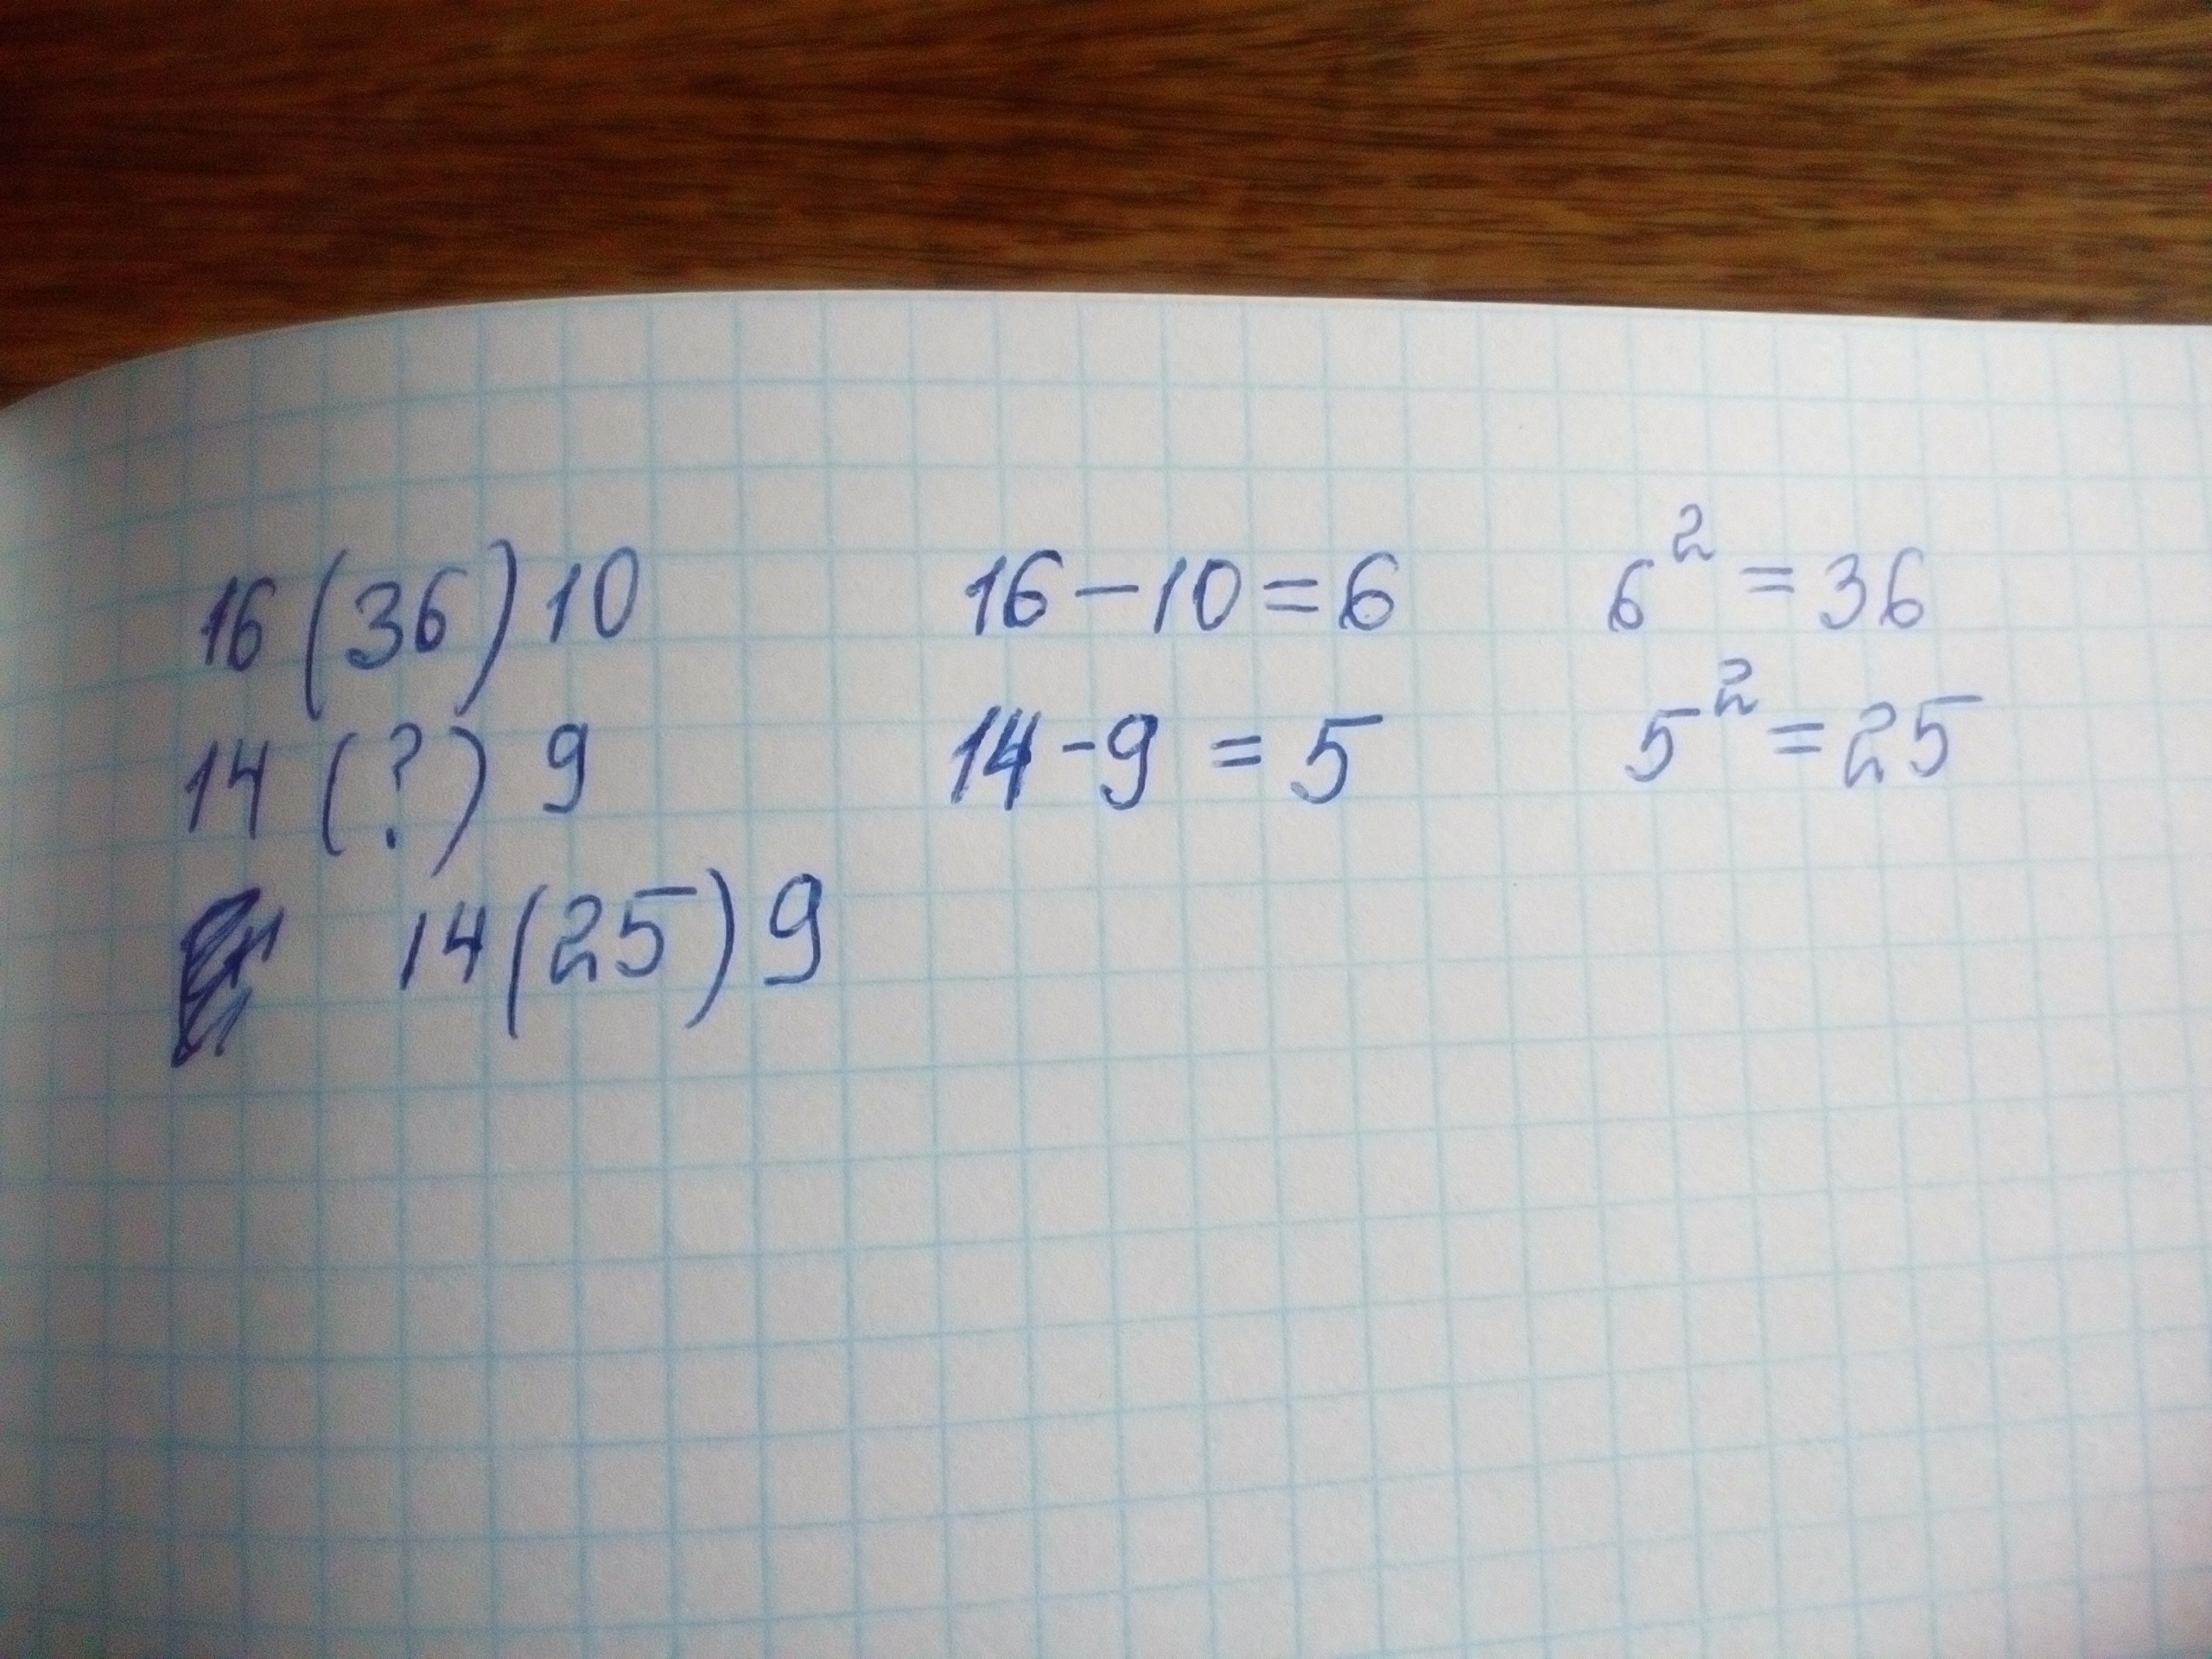 16 (36) 10 16 - 10 = 6 6² = 36
14 (?) 9 14 - 9 = 5 5² = 25
14 (25) 9